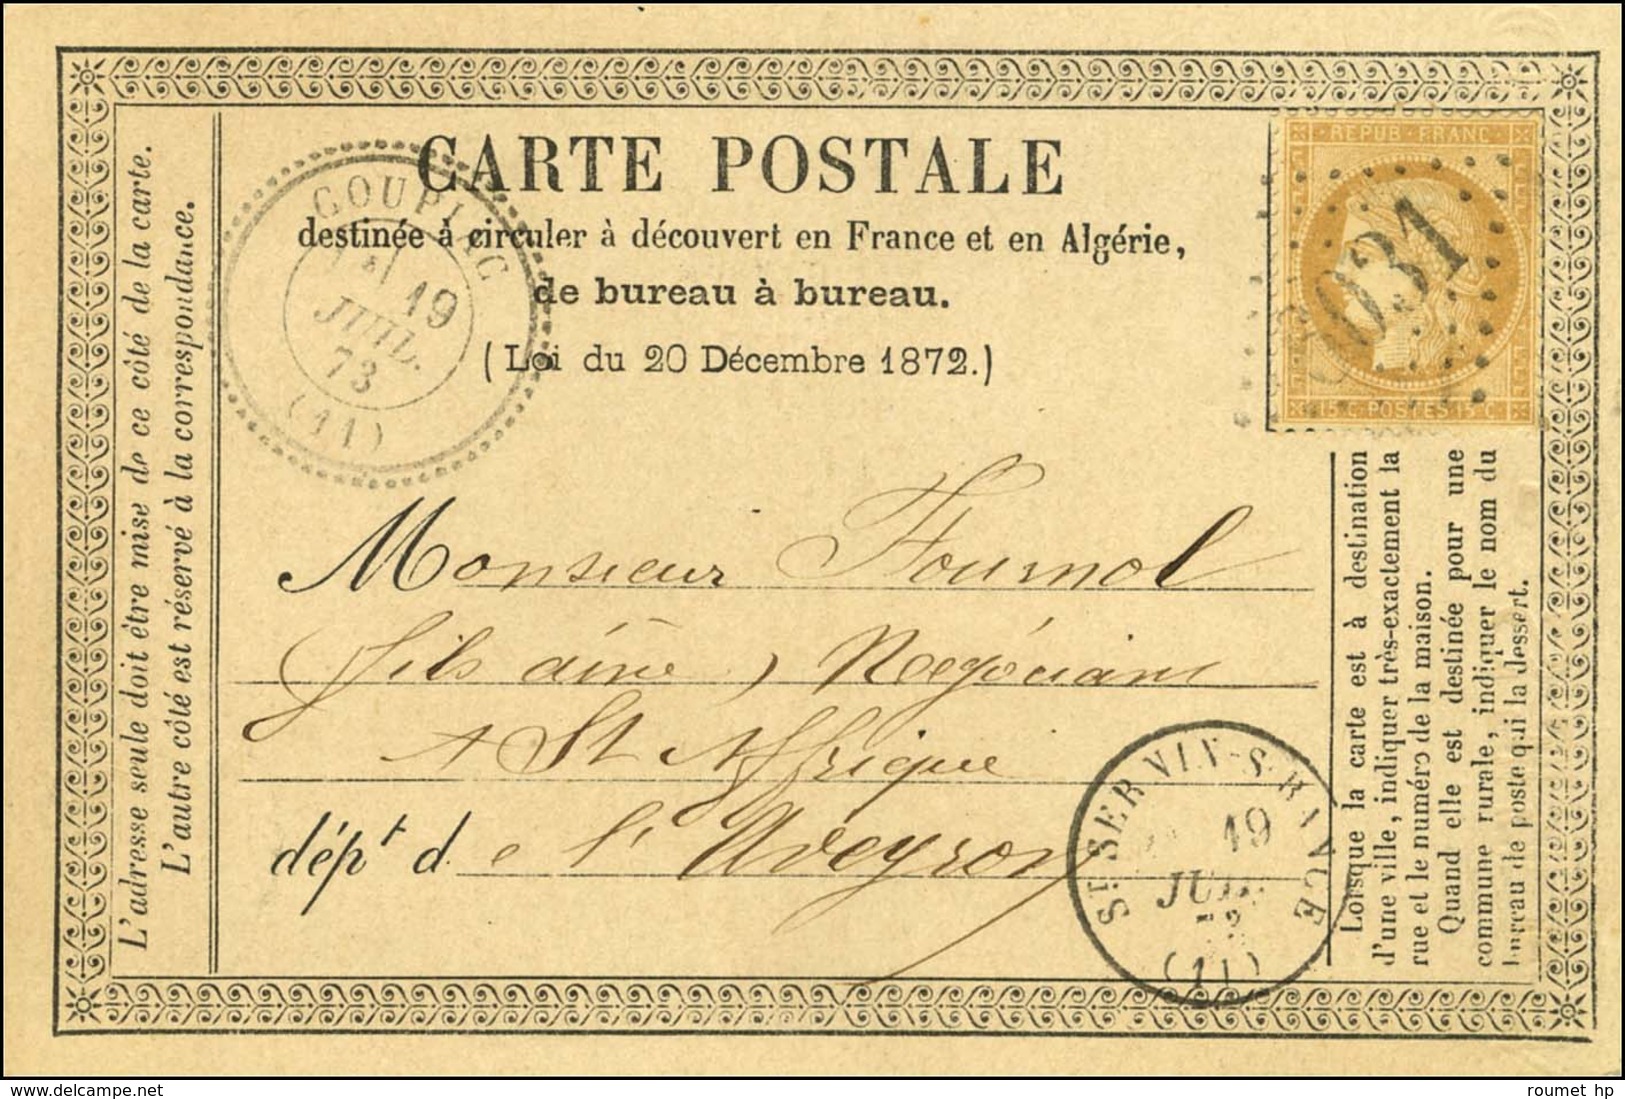 CARTE POSTALE
destinée à circuler à découvert en France et en Algérie,
de bureau à bureau.
(Loi du 20 Décembre 1872.)
L'adresse seule doit être mise de ce côté de la carte.
L'autre côté est réservé à la correspondance.
COUPIAC
19
JUIL.
73
(11)
REPUB FRANC
15 C POSTES 15 C
Monsieur Fournol
fils ainé, Negociant
A St Affrique
dépt de l'Aveyron
ST SERNIN-S-RANCE
19
JUIL.
73
(11)
Lorsque la carte est à destination
d'une ville, indiquer très-exactement la
rue et le numéro de la maison.
Quand elle est destinée pour une
commune rurale, indiquer le nom du
bureau de poste qui la dessert.
roumet hp